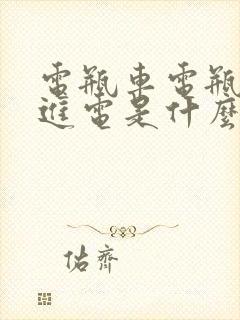 電瓶車電瓶
進電是什麼
佑齊